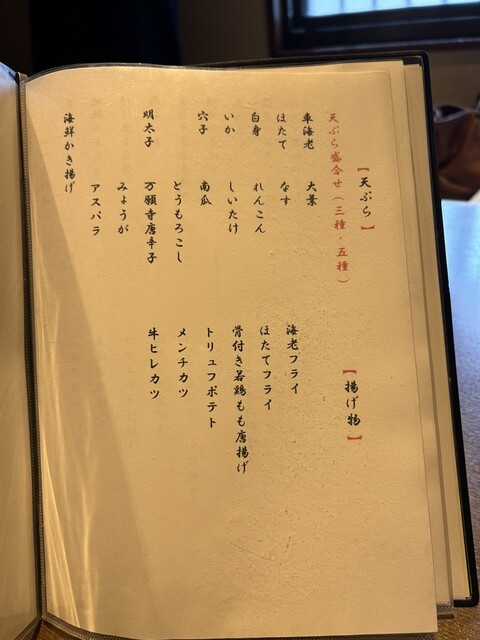 【天ぷら】
天ぷら盛合せ（三種・五種）
車海老
ほたて
白身
いか
穴子
明太子
大葉
なす
れんこん
しいたけ
南瓜
とうもろこし
万願寺唐辛子
みょうが
アスパラ
海鮮かき揚げ
【揚げ物】
海老フライ
ほたてフライ
骨付き若鶏もも唐揚げ
トリュフポテト
メンチカツ
牛ヒレカツ